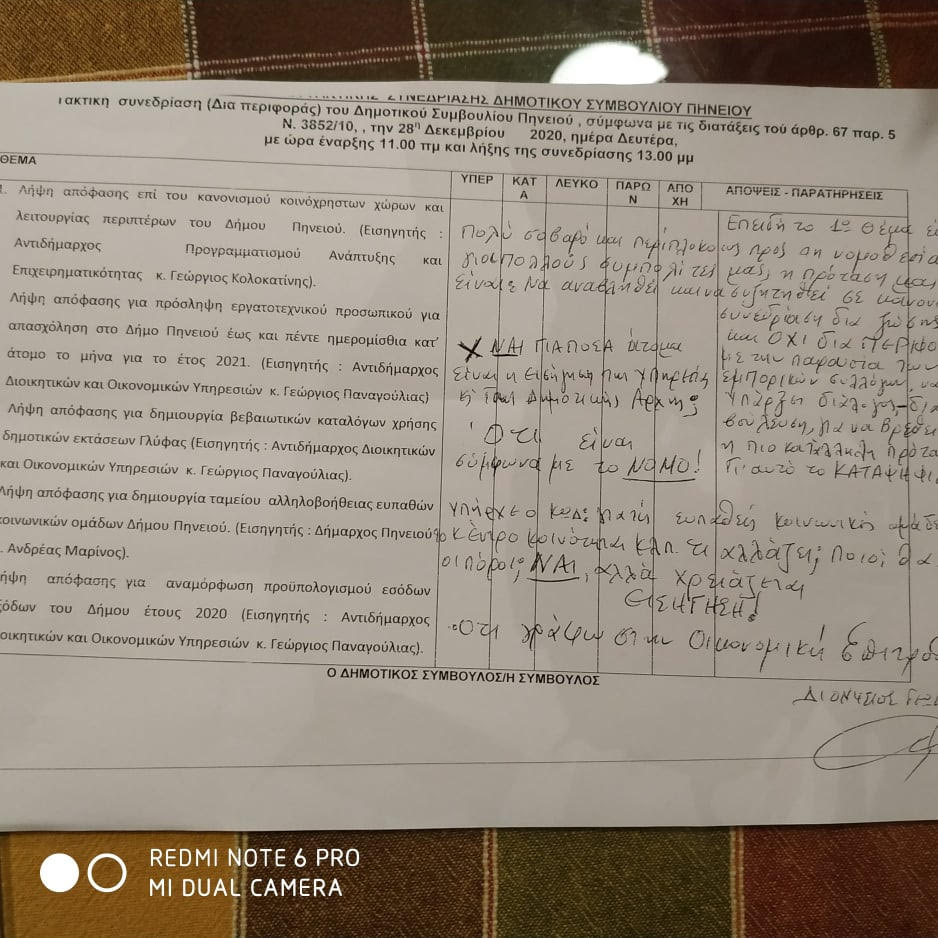 ΣΥΝΕΔΡΙΑΣΗΣ ΔΗΜΟΤΙΚΟΥ ΣΥΜΒΟΥΛΙΟΥ ΠΗΝΕΙΟΥ
Τακτική συνεδρίαση (Δια περιφοράς) του Δημοτικού Συμβουλίου Πηνειού , σύμφωνα με τις διατάξεις τού άρθρ. 67 παρ. 5
Ν. 3852/10, , την 28η Δεκεμβρίου 2020, ημέρα Δευτέρα,
με ώρα έναρξης 11.00 πμ και λήξης της συνεδρίασης 13.00 μμ
ΘΕΜΑ
ΥΠΕΡ
ΚΑΤΑ
ΛΕΥΚΟ
ΠΑΡΩΝ
ΑΠΟΧΗ
ΑΠΟΨΕΙΣ - ΠΑΡΑΤΗΡΗΣΕΙΣ
1. Λήψη απόφασης επί του κανονισμού κοινόχρηστων χώρων και
λειτουργίας περιπτέρων του Δήμου Πηνειού. (Εισηγητής :
Αντιδήμαρχος Προγραμματισμού Ανάπτυξης και
Επιχειρηματικότητας κ. Γεώργιος Κολοκατίνης).
Πολύ σοβαρό και περίπλοκο ως προς τη νομοθεσία
για πολλούς συμπολίτες μας, η πρόταση μας
είναι: Να αναβληθεί και να συζητηθεί σε
Επειδή το 1ο Θέμα
συνεδρίαση δια ζώσης
και ΟΧΙ δια
με την παρουσία των
εμπορικών συλλόγων, να
υπάρξει διάλογος-δια
βούλευση, για να βρεθεί
η πιο κατάλληλη
Γι' αυτό το ΚΑΤΑΨΗΦΙ
Λήψη απόφασης για πρόσληψη εργατοτεχνικού προσωπικού για
απασχόληση στο Δήμο Πηνειού έως και πέντε ημερομίσθια κατ'
άτομο το μήνα για το έτος 2021. (Εισηγητής : Αντιδήμαρχος
Διοικητικών και Οικονομικών Υπηρεσιών κ. Γεώργιος Παναγούλιας)
Χ ΝΑΙ ΓΙΑ ΠΟΣΑ άτομα
είναι η εισήγηση της υπηρεσίας
ή της Δημοτικής Αρχής;
Λήψη απόφασης για δημιουργία βεβαιωτικών καταλόγων χρήσης
δημοτικών εκτάσεων Γλύφας (Εισηγητής : Αντιδήμαρχος Διοικητικών
και Οικονομικών Υπηρεσιών κ. Γεώργιος Παναγούλιας).
Ότι είναι
σύμφωνα με το ΝΟΜΟ!
Λήψη απόφασης για δημιουργία ταμείου αλληλοβοήθειας ευπαθών
κοινωνικών ομάδων Δήμου Πηνειού. (Εισηγητής : Δήμαρχος Πηνειού
κ. Ανδρέας Μαρίνος).
ευπαθείς κοινωνικές
Κέντρο κοινότητας κλπ. τι αλλάζει; Ποιοι θα
οι πόροι; ΝΑΙ, αλλά χρειάζεται
ΕΙΣΗΓΗΣΗ!
Λήψη απόφασης για αναμόρφωση προϋπολογισμού εσόδων
εξόδων του Δήμου έτους 2020 (Εισηγητής : Αντιδήμαρχος
Διοικητικών και Οικονομικών Υπηρεσιών κ. Γεώργιος Παναγούλιας).
Ότι γράφω στην Οικονομική
Ο ΔΗΜΟΤΙΚΟΣ ΣΥΜΒΟΥΛΟΣ/Η ΣΥΜΒΟΥΛΟΣ
ΔΙΟΝΥΣΙΟΣ
REDMI NOTE 6 PRO
MI DUAL CAMERA